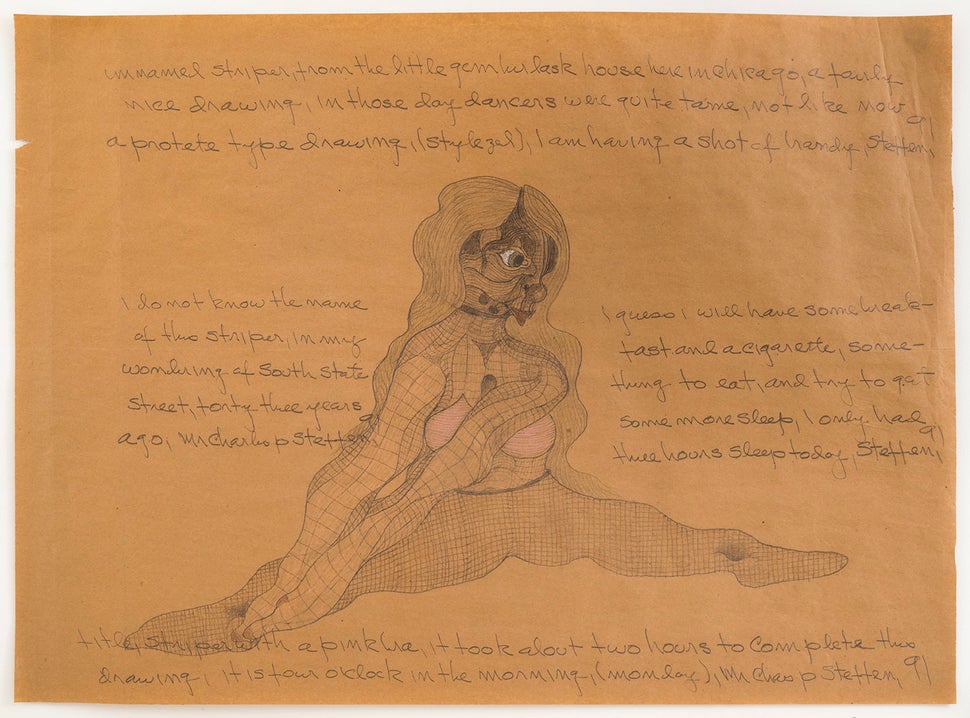 unnamed striper, from the little gem burlask house here in chicago, a fairly
nice drawing, in those day dancers were quite tame, not like now
a protete type drawing, (stylezed), I am having a shot of brandy, Steffen, 91
I do not know the name
of this striper, in my
wondering of South State
Street, forty three years
ago, Mr Charles p Steffen 91
I guess I will have some break-
fast and a cigarette, some-
thing to eat, and try to get
some more sleep, I only had
three hours sleep today, Steffen, 91
title, striper with a pink bra, it took about two hours to complete this
drawing, it is four o'clock in the morning, (monday), Mr Chas p Steffen, 91